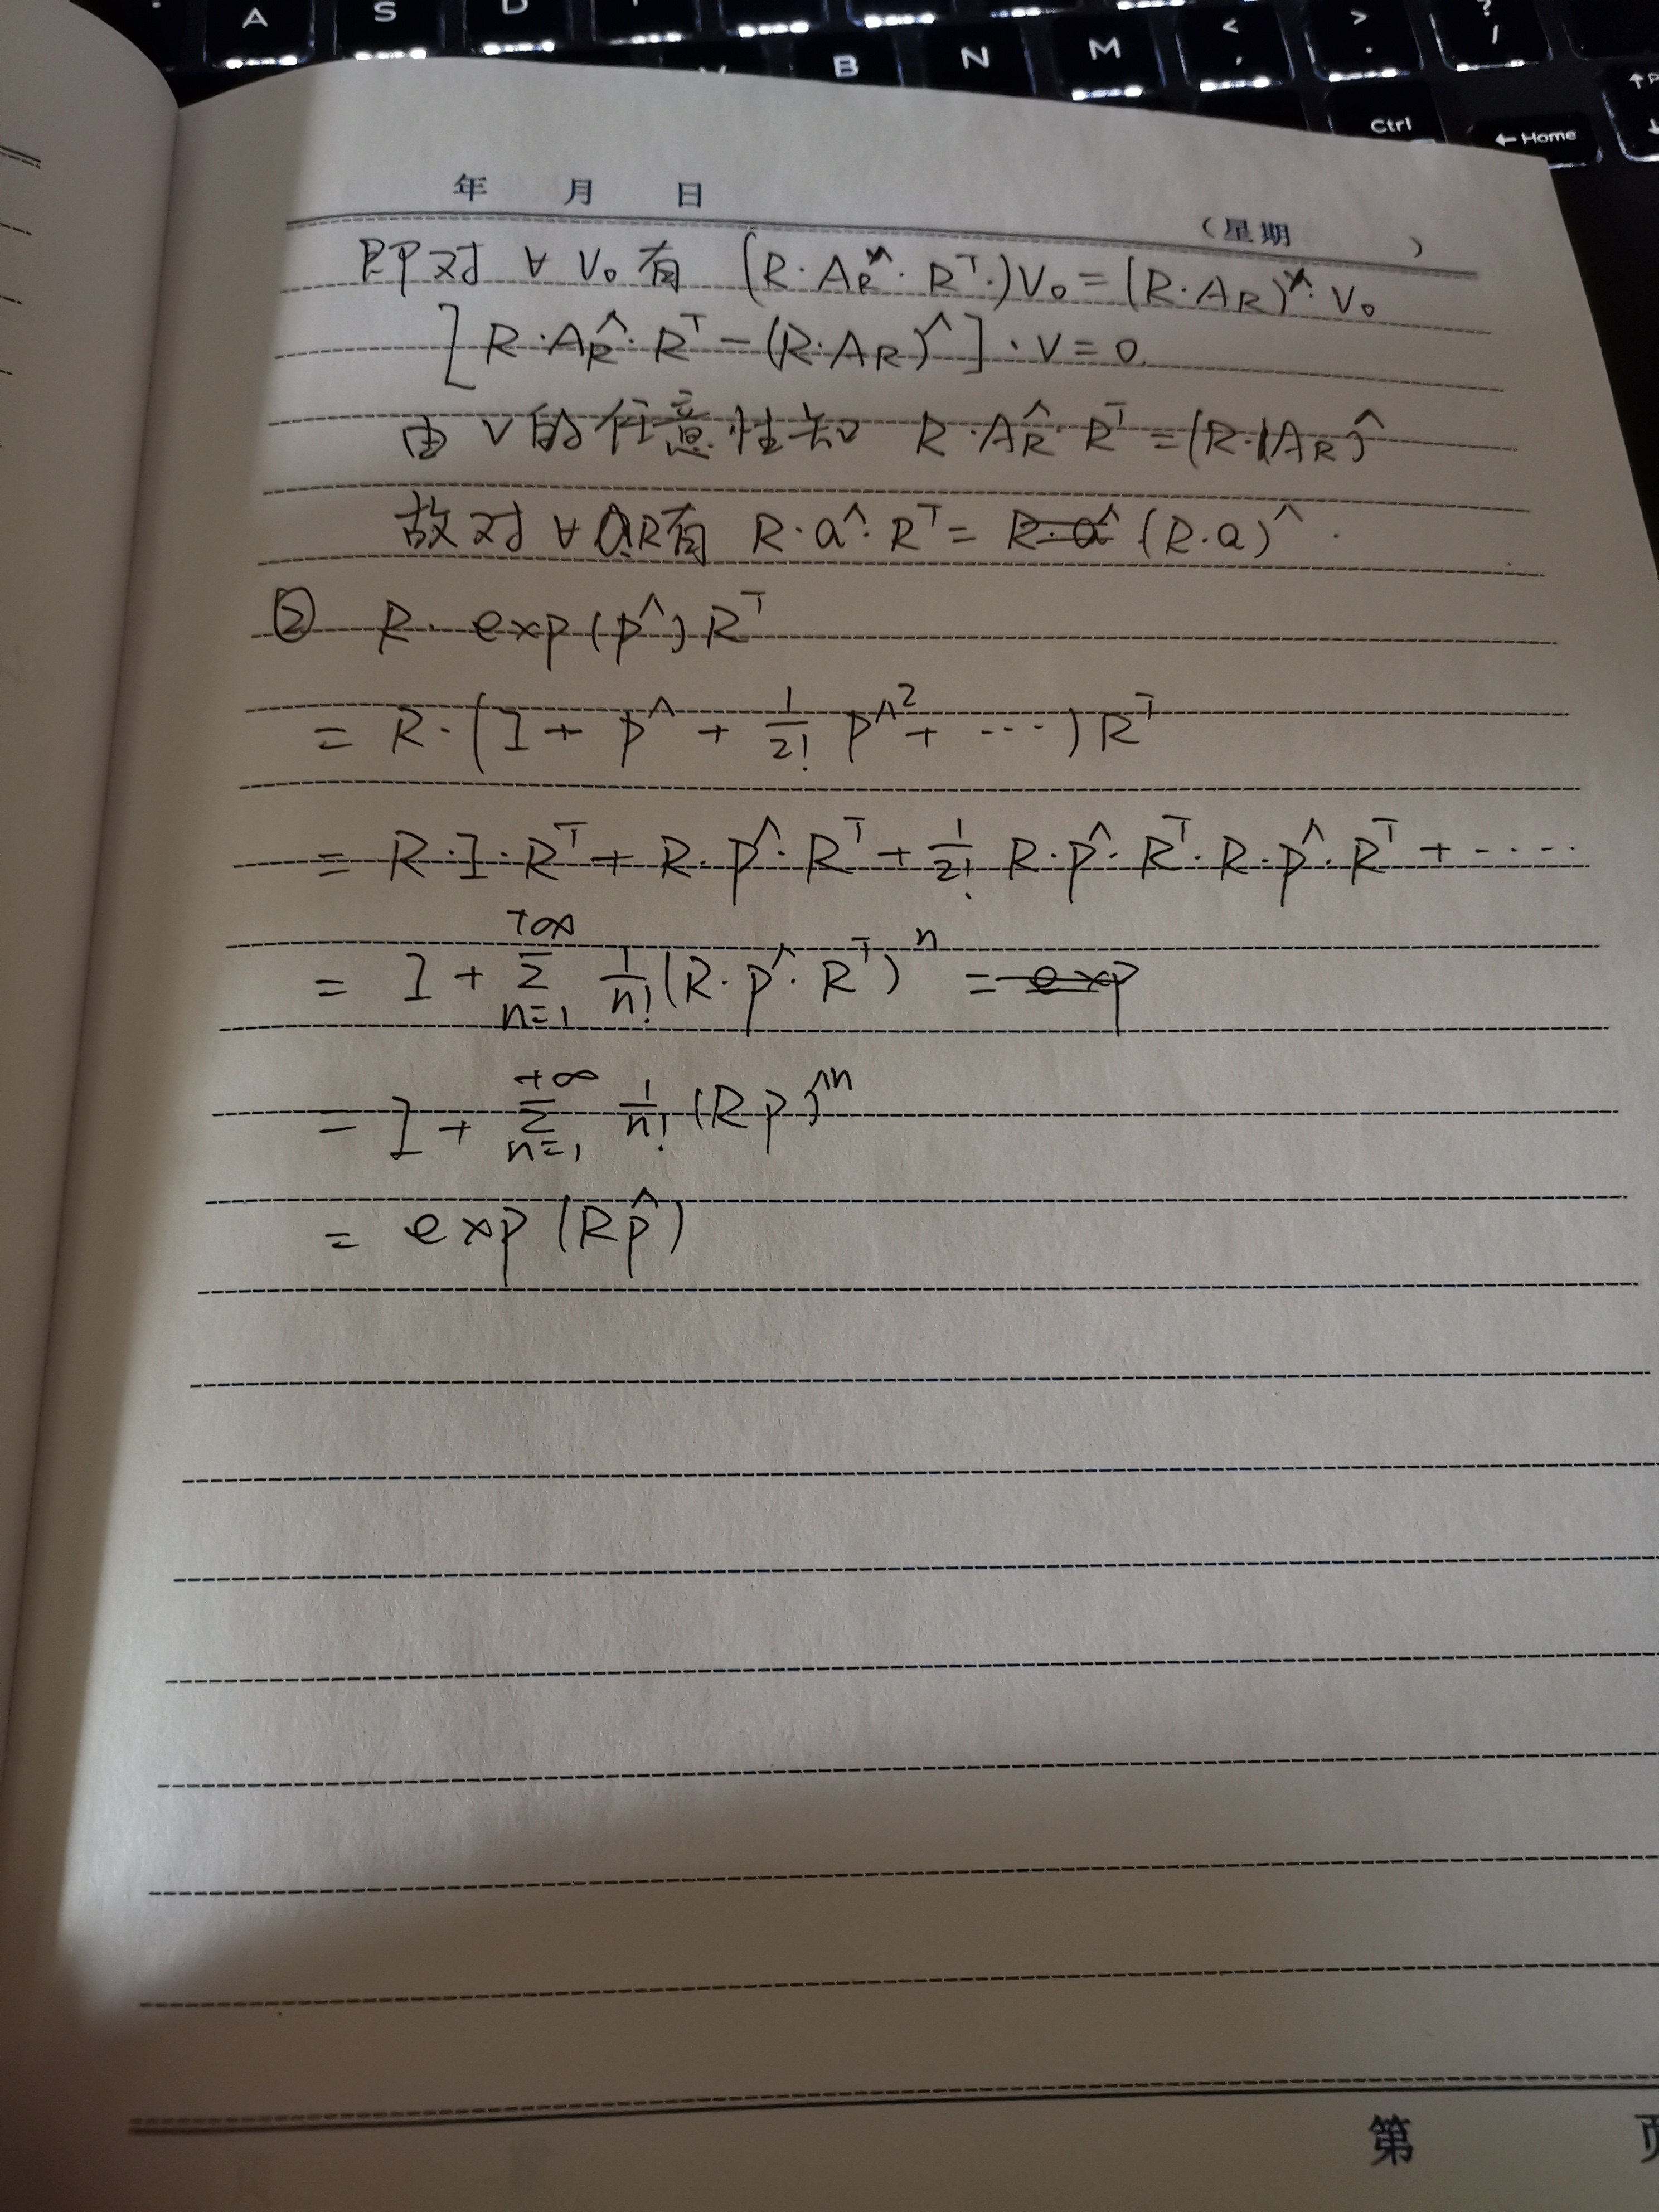 A S D
B N M < , > . ? /
Ctrl ← Home
年 月 日
(星期 )
即对 ∀ V₀ 有 (R·A_R^·Rᵀ·)V₀=(R·A_R)^·V₀
[R·A_R^·Rᵀ-(R·A_R)^]·V=0.
由 V的任意性知 R·A_R^·Rᵀ=(R·A_R)^
故对 ∀ a_R有 R·a^·Rᵀ= R·a^ (R·a)^.
② R·exp(p^)Rᵀ
= R·(I+ p^ + 1/2! p^² + ···)Rᵀ
= R·I·Rᵀ+ R·p^·Rᵀ+ 1/2! R·p^·Rᵀ·R·p^·Rᵀ + ····
= I + Σ_{n=1}^{+∞} 1/n! (R·p^·Rᵀ)ⁿ = exp
= I + Σ_{n=1}^{+∞} 1/n! (Rp)^ⁿ
= exp (Rp^)
第 页